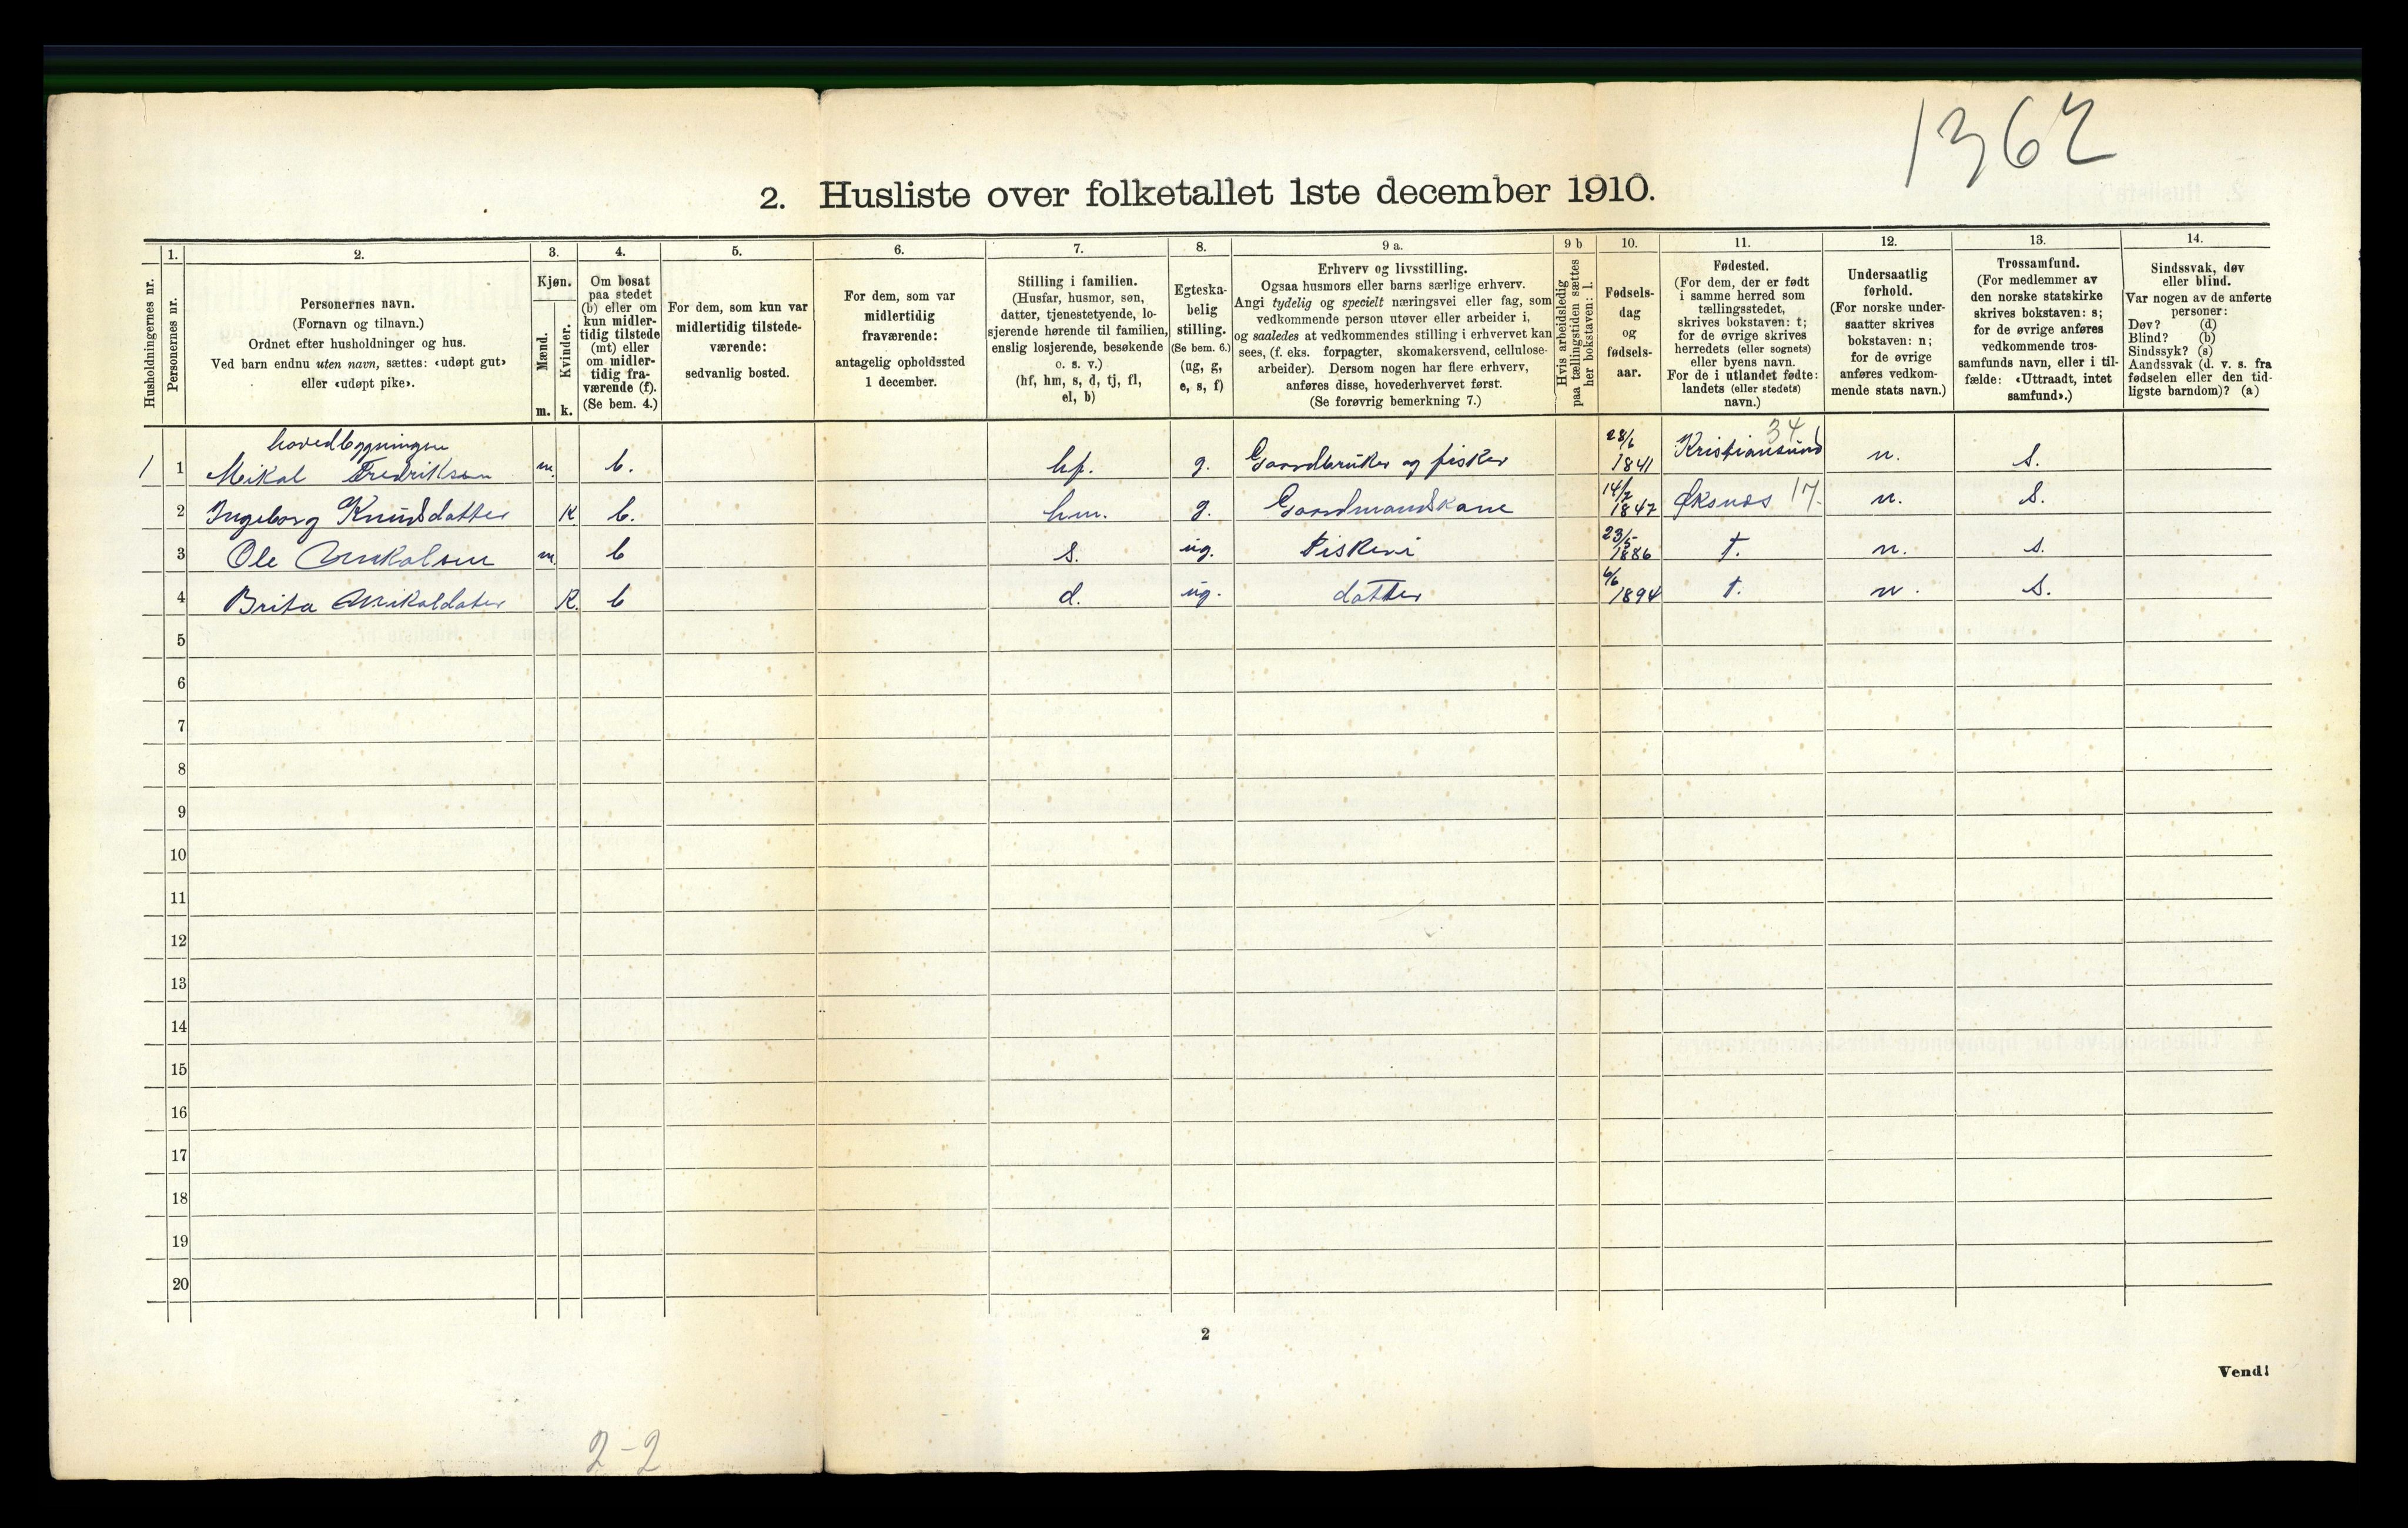 1362
2. Husliste over folketallet 1ste december 1910.
Husholdningernes nr.
1.
Personernes nr.
2.
Personernes navn.
(Fornavn og tilnavn.)
Ordnet efter husholdninger og hus.
Ved barn endnu uten navn, sættes: «udøpt gut»
eller «udøpt pike».
3.
Kjøn.
Mænd.
Kvinder.
m. k.
4.
Om bosat
paa stedet
(b) eller om
kun midler-
tidig tilstede
(mt) eller
om midler-
tidig fra-
værende (f).
(Se bem. 4.)
5.
For dem, som kun var
midlertidig tilstede-
værende:
sedvanlig bosted.
6.
For dem, som var
midlertidig
fraværende:
antagelig opholdssted
1 december.
7.
Stilling i familien.
(Husfar, husmor, søn,
datter, tjenestetyende, lo-
sjerende hørende til familien,
enslig losjerende, besøkende
o. s. v.)
(hf, hm, s, d, tj, fl,
el, b)
8.
Egteska-
belig
stilling.
(Se bem. 6.)
(ug, g,
e, s, f)
9 a.
Erhverv og livsstilling.
Ogsaa husmors eller barns særlige erhverv.
Angi tydelig og specielt næringsvei eller fag, som
vedkommende person utøver eller arbeider i,
og saaledes at vedkommendes stilling i erhvervet kan
sees, (f. eks. forpagter, skomakersvend, cellulose-
arbeider). Dersom nogen har flere erhverv,
anføres disse, hovederhvervet først.
(Se forøvrig bemerkning 7.)
9 b
Hvis arbeidsledig
paa tællingstiden sættes
her bokstaven: l.
10.
Fødsels-
dag
og
fødsels-
aar.
11.
Fødested.
(For dem, der er født
i samme herred som
tællingsstedet,
skrives bokstaven: t;
for de øvrige skrives
herredets (eller sognets)
eller byens navn.
For de i utlandet fødte:
landets (eller stedets)
navn.)
12.
Undersaatlig
forhold.
(For norske under-
saatter skrives
bokstaven: n;
for de øvrige
anføres vedkom-
mende stats navn.)
13.
Trossamfund.
(For medlemmer av
den norske statskirke
skrives bokstaven: s;
for de øvrige anføres
vedkommende tros-
samfunds navn, eller i til-
fælde: «Uttraadt, intet
samfund».)
14.
Sindssvak, døv
eller blind.
Var nogen av de anførte
personer:
Døv? (d)
Blind? (b)
Sindssyk? (s)
Aandssvak (d. v. s. fra
fødselen eller den tid-
ligste barndom)? (a)
hovedbygningen
1 1 Mikal Fredriksen m. b. hf. g. Gaardbruker og fisker 28/6 1841 Kristiansund 34 n. s.
2 Ingeborg Knudsdatter k b. hm. g. Gaardmandskone 14/7 1847 Øksnes 17. n. s.
3 Ole Mikalsen m. b s. ug. Fiskeri 23/5 1886 t. n. s.
4 Brita Mikaldater k. b d. ug. datter 6/6 1894 t. n. s.
5
6
7
8
9
10
11
12
13
14
15
16
17
18
19
20
2
Vend!
2-2